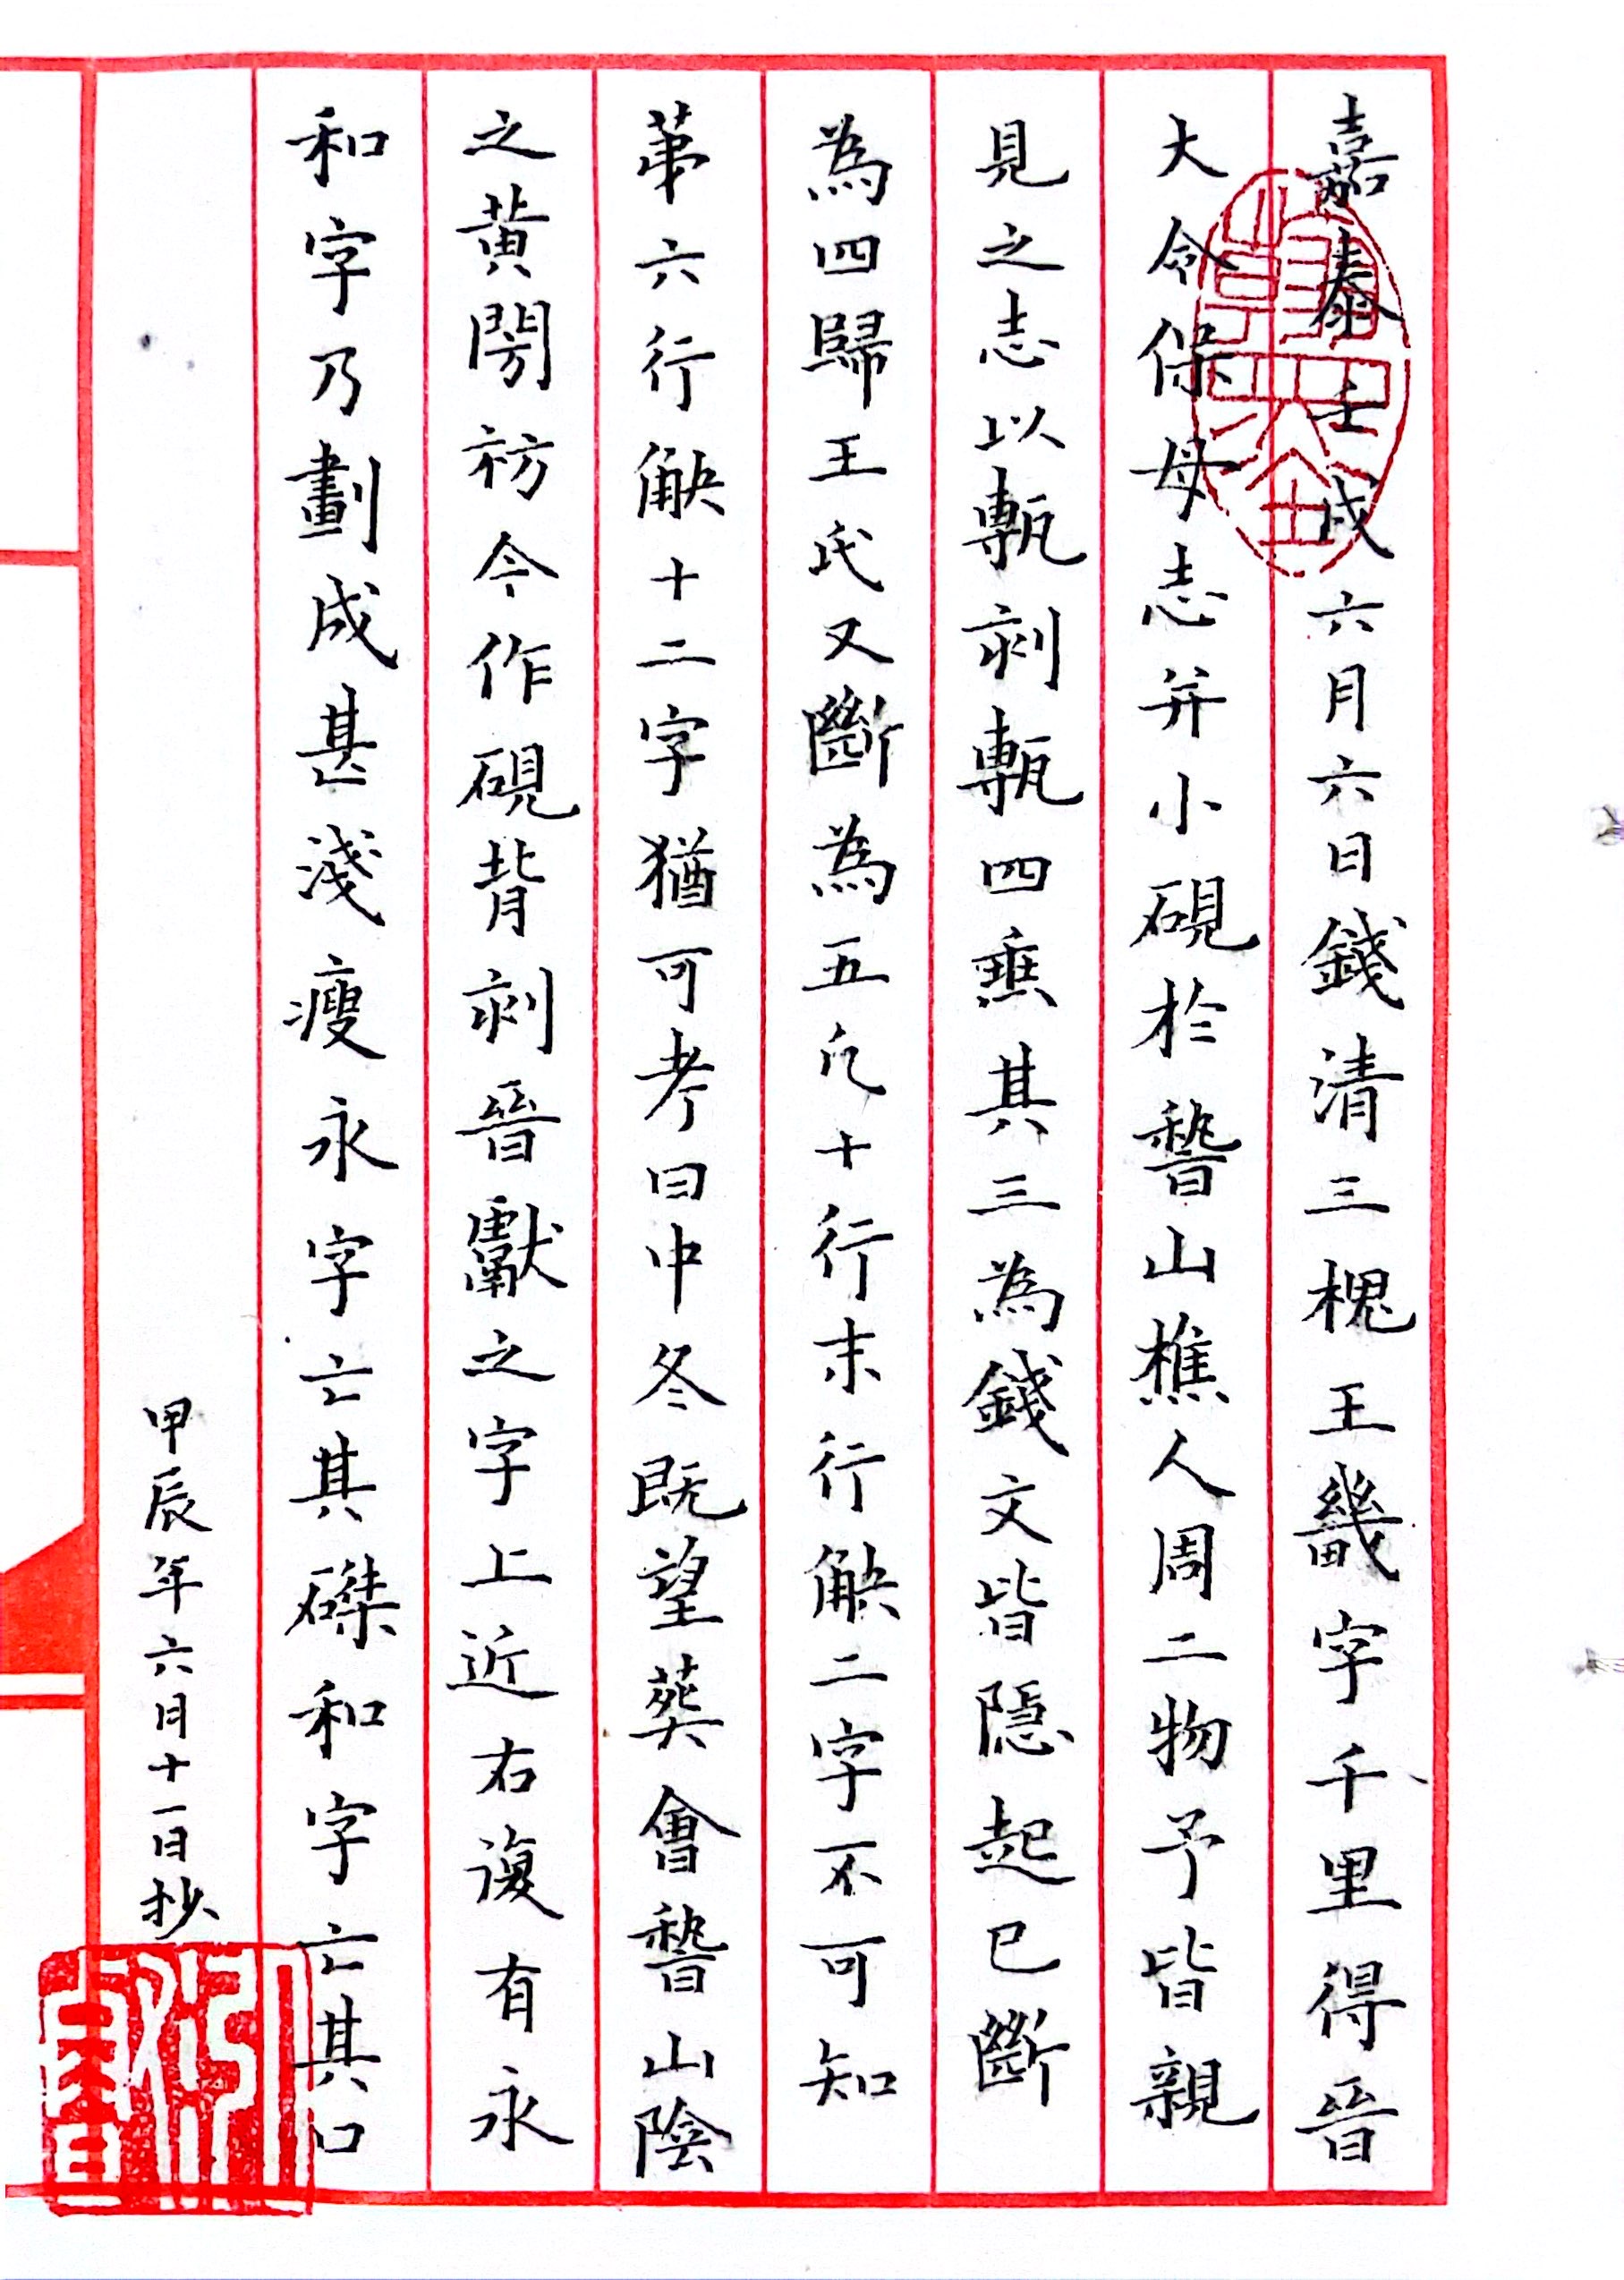 嘉泰壬戌六月六日錢清三槐王畿字千里得晉
大令保母志并小硯於嵆山樵人周二物予皆親
見之志以甎刻甎四垂其三為錢文皆隱起已斷
為四歸王氏又斷為五凡十行末行缺二字不可知
第六行缺十二字猶可考曰中冬既望葬會嵆山陰
之黃閍祊今作硯背刻晉獻之字上近右復有永
和字乃劃成甚淺瘦永字亡其磔和字亡其口
甲辰年六月十一日抄